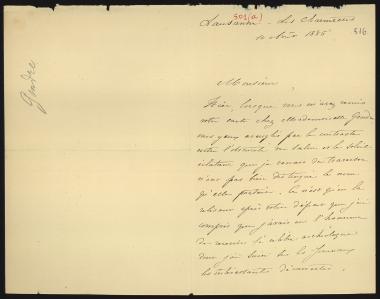 501(a)
Lausanne - Les Charmettes
10 Août 1885
516
Gendre
Monsieur,
Hier, lorsque vous m'avez remis
votre carte chez Mademoiselle Gendre
mes yeux aveuglés par le contraste
entre l'obscurité du salon et le soleil
éclatant que je venais de traverser
n'ont pas bien distingué le nom
qu'elle portait. Ce n'est qu'en le
relisant après votre départ que j'ai
compris que j'avais eu l'honneur
de voir le célèbre archéologue
dont j'ai suivi dans les journaux
les intéressantes découvertes.